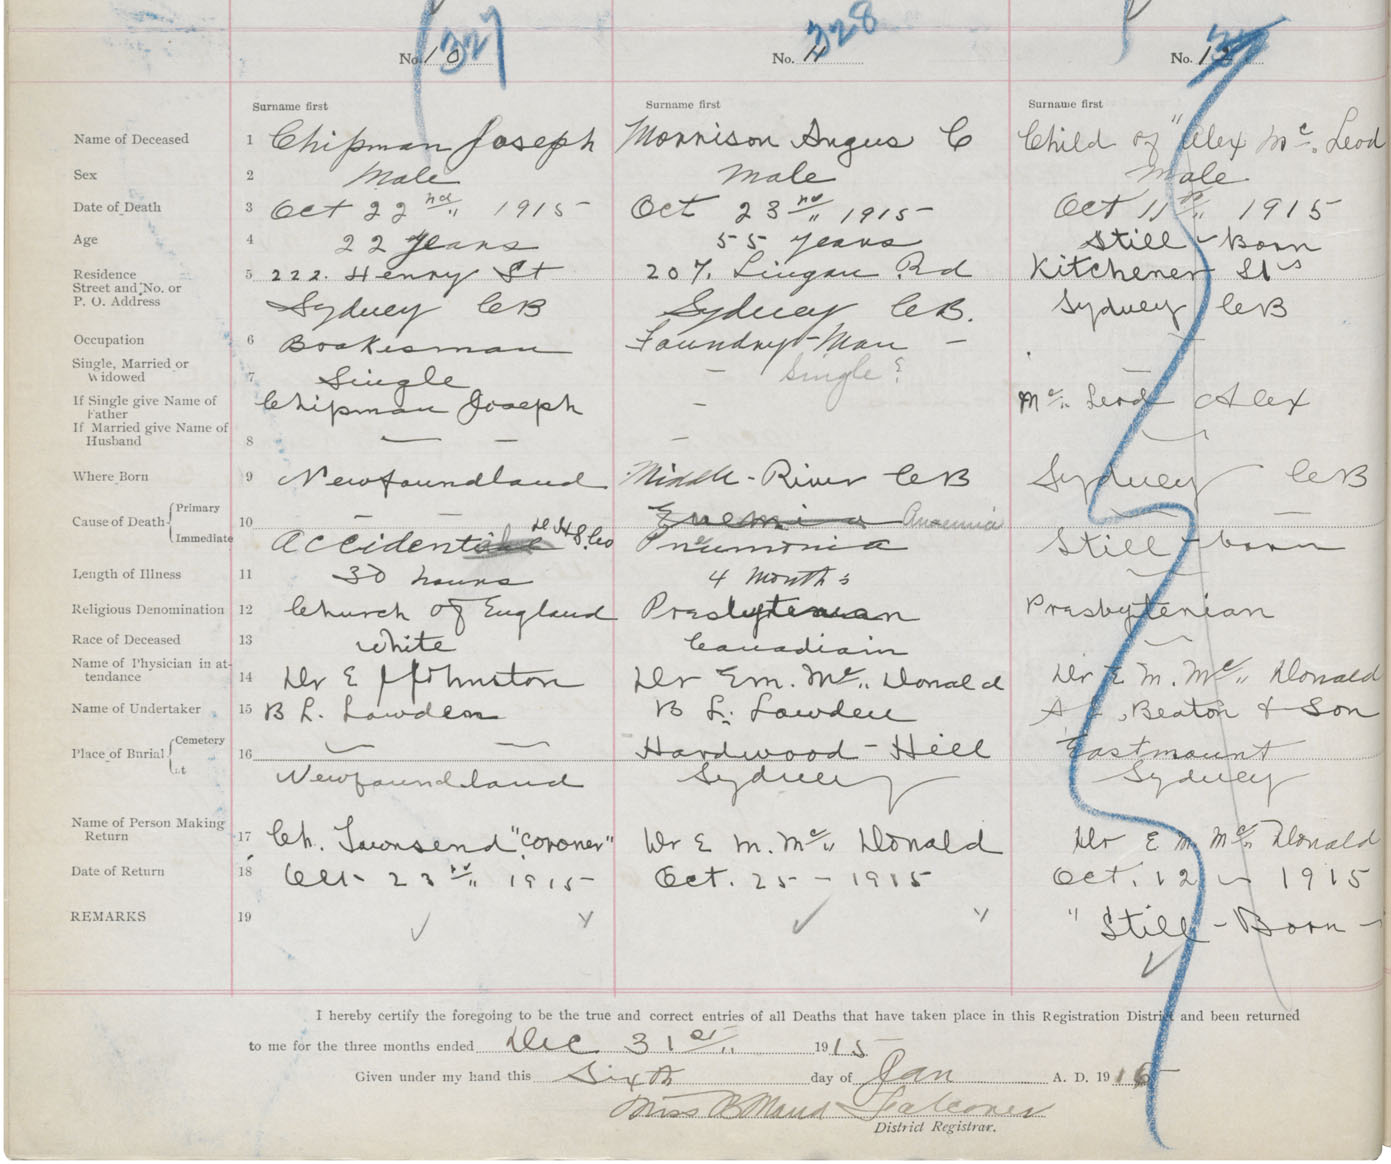 327 328
No. 10 No. 11 No. 12
Surname first Surname first Surname first
Name of Deceased 1 Chipman Joseph Morrison Angus C Child of "Alex Mc. Leod
Sex 2 Male Male Male
Date of Death 3 Oct 22nd 1915 Oct 23rd 1915 Oct 11th 1915
Age 4 22 years 55 years Still-Born
Residence 5 222. Henry St 207. Lingan Rd Kitchener St
Street and No. or
P. O. Address Sydney CB Sydney CB. Sydney CB
Occupation 6 Brakesman Foundry-Man -
Single, Married or
Widowed 7 Single - Single?
If Single give Name of
Father Chipman Joseph - Mc. Leod Alex
If Married give Name of
Husband 8 - - -
Where Born 9 Newfoundland Middle-River CB Sydney CB
Cause of Death Primary 10 - - Enemia Anaemia - -
Immediate Accidental Pneumonia Still-born
Length of Illness 11 30 hours 4 months
Religious Denomination 12 Church of England Presbyterian Presbyterian
Race of Deceased 13 white Canadian
Name of Physician in at-
tendance 14 Dr E Johnston Dr E m. Mc. Donald Dr E M. Mc. Donald
Name of Undertaker 15 B L. Lowden B L. Lowden A , Beaton & Son
Place of Burial Cemetery 16 Hardwood-Hill Eastmount
At Newfoundland Sydney Sydney
Name of Person Making
Return 17 Ch. Townsend "Coroner" Dr E M. Mc. Donald Dr E m Mc. Donald
Date of Return 18 Oct 23rd 1915 Oct. 25 - 1915 Oct. 12 - 1915
REMARKS 19 "Still-Born-"
I hereby certify the foregoing to be the true and correct entries of all Deaths that have taken place in this Registration District and been returned
to me for the three months ended Dec 31st 1915
Given under my hand this Sixth day of Jan A. D. 1916
Miss B Maud Falconer
District Registrar.